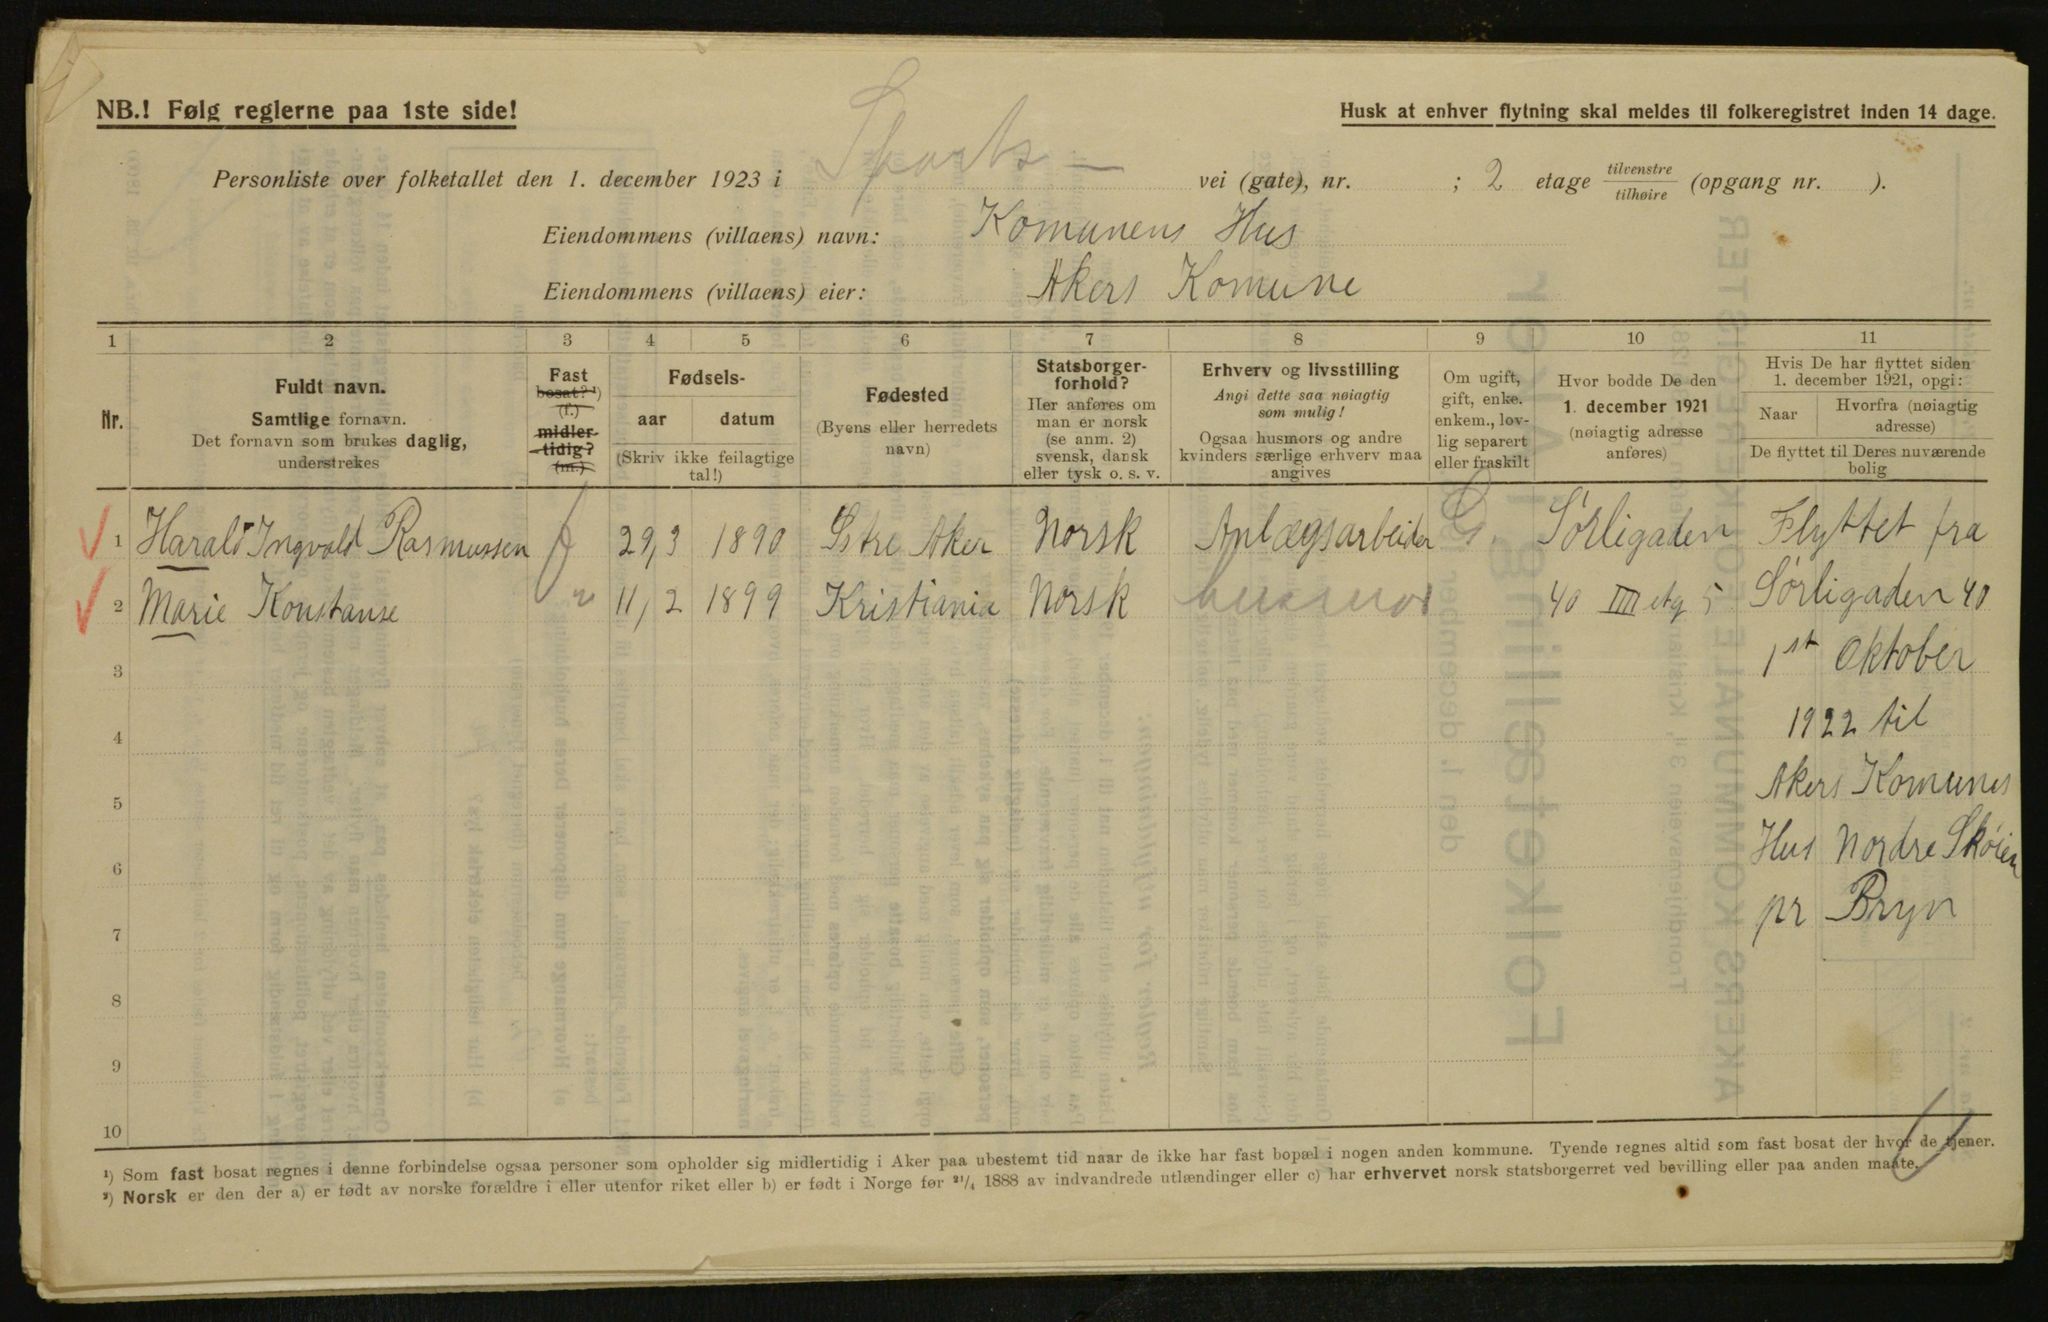 NB.! Følg reglerne paa 1ste side!
Husk at enhver flytning skal meldes til folkeregistret inden 14 dage.
Personliste over folketallet den 1. december 1923 i Sports- vei (gate), nr. ; 2 etage tilvenstre tilhøire (opgang nr. ).
Eiendommens (villaens) navn: Komunens Hus
Eiendommens (villaens) eier: Akers Komune
1 2 3 4 5 6 7 8 9 10 11
Nr.
Fuldt navn.
Samtlige fornavn.
Det fornavn som brukes daglig,
understrekes
Fast
bosat? ¹)
(f.)
midler-
tidig?
(m.)
Fødsels-
aar datum
(Skriv ikke feilagtige
tal!)
Fødested
(Byens eller herredets
navn)
Statsborger-
forhold?
Her anføres om
man er norsk
(se anm. 2)
svensk, dansk
eller tysk o. s. v.
Erhverv og livsstilling
Angi dette saa nøiagtig
som mulig!
Ogsaa husmors og andre
kvinders særlige erhverv maa
angives
Om ugift,
gift, enke.
enkem., lov-
lig separert
eller fraskilt
Hvor bodde De den
1. december 1921
(nøiagtig adresse
anføres)
Hvis De har flyttet siden
1. december 1921, opgi:
Naar Hvorfra (nøiagtig
adresse)
De flyttet til Deres nuværende
bolig
1 Harald Ingvald Rasmussen f 29/3 1890 Østre Aker Norsk Anlægsarbeider G. Sørligaden Flyttet fra
2 Marie Konstanse " 11/2 1899 Kristiania Norsk husmor 40 IIII etg 5 Sørligaden 40
3 1st Oktober
4 1922 til
5 Akers Komunes
6 Hus Nordre Skøien
7 pr Bryn
8
9
10
¹) Som fast bosat regnes i denne forbindelse ogsaa personer som opholder sig midlertidig i Aker paa ubestemt tid naar de ikke har fast bopæl i nogen anden kommune. Tyende regnes altid som fast bosat der hvor de tjener.
²) Norsk er den der a) er født av norske forældre i eller utenfor riket eller b) er født i Norge før 21/4 1888 av indvandrede utlændinger eller c) har erhvervet norsk statsborgerret ved bevilling eller paa anden maate.